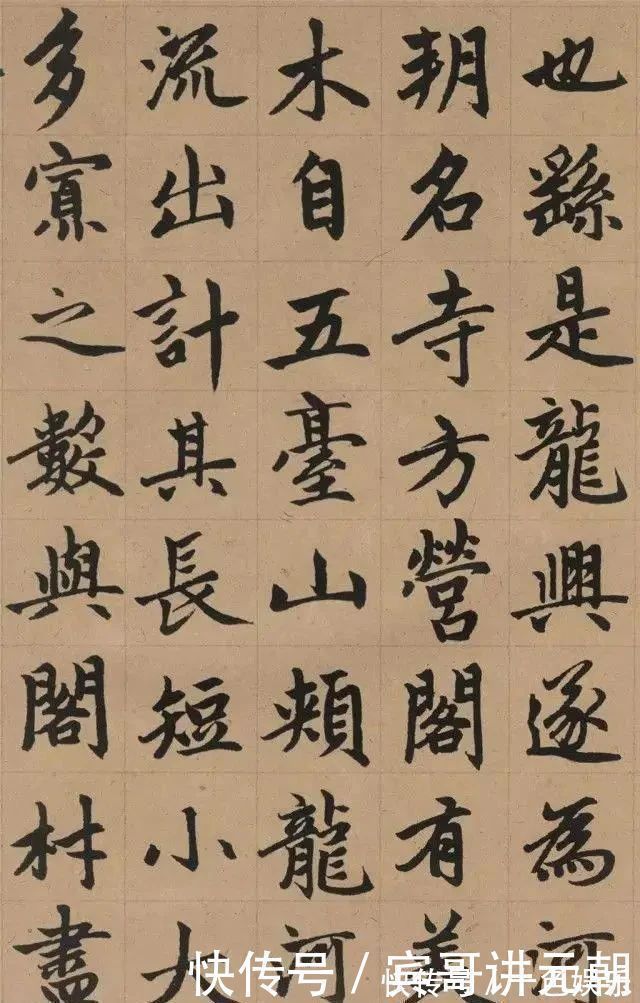 也繇是龍興遂為河
朔名寺方營閣有美
木自五臺山頰龍河
流出計其長短小大
多寡之數與閣材盡
快传号 /